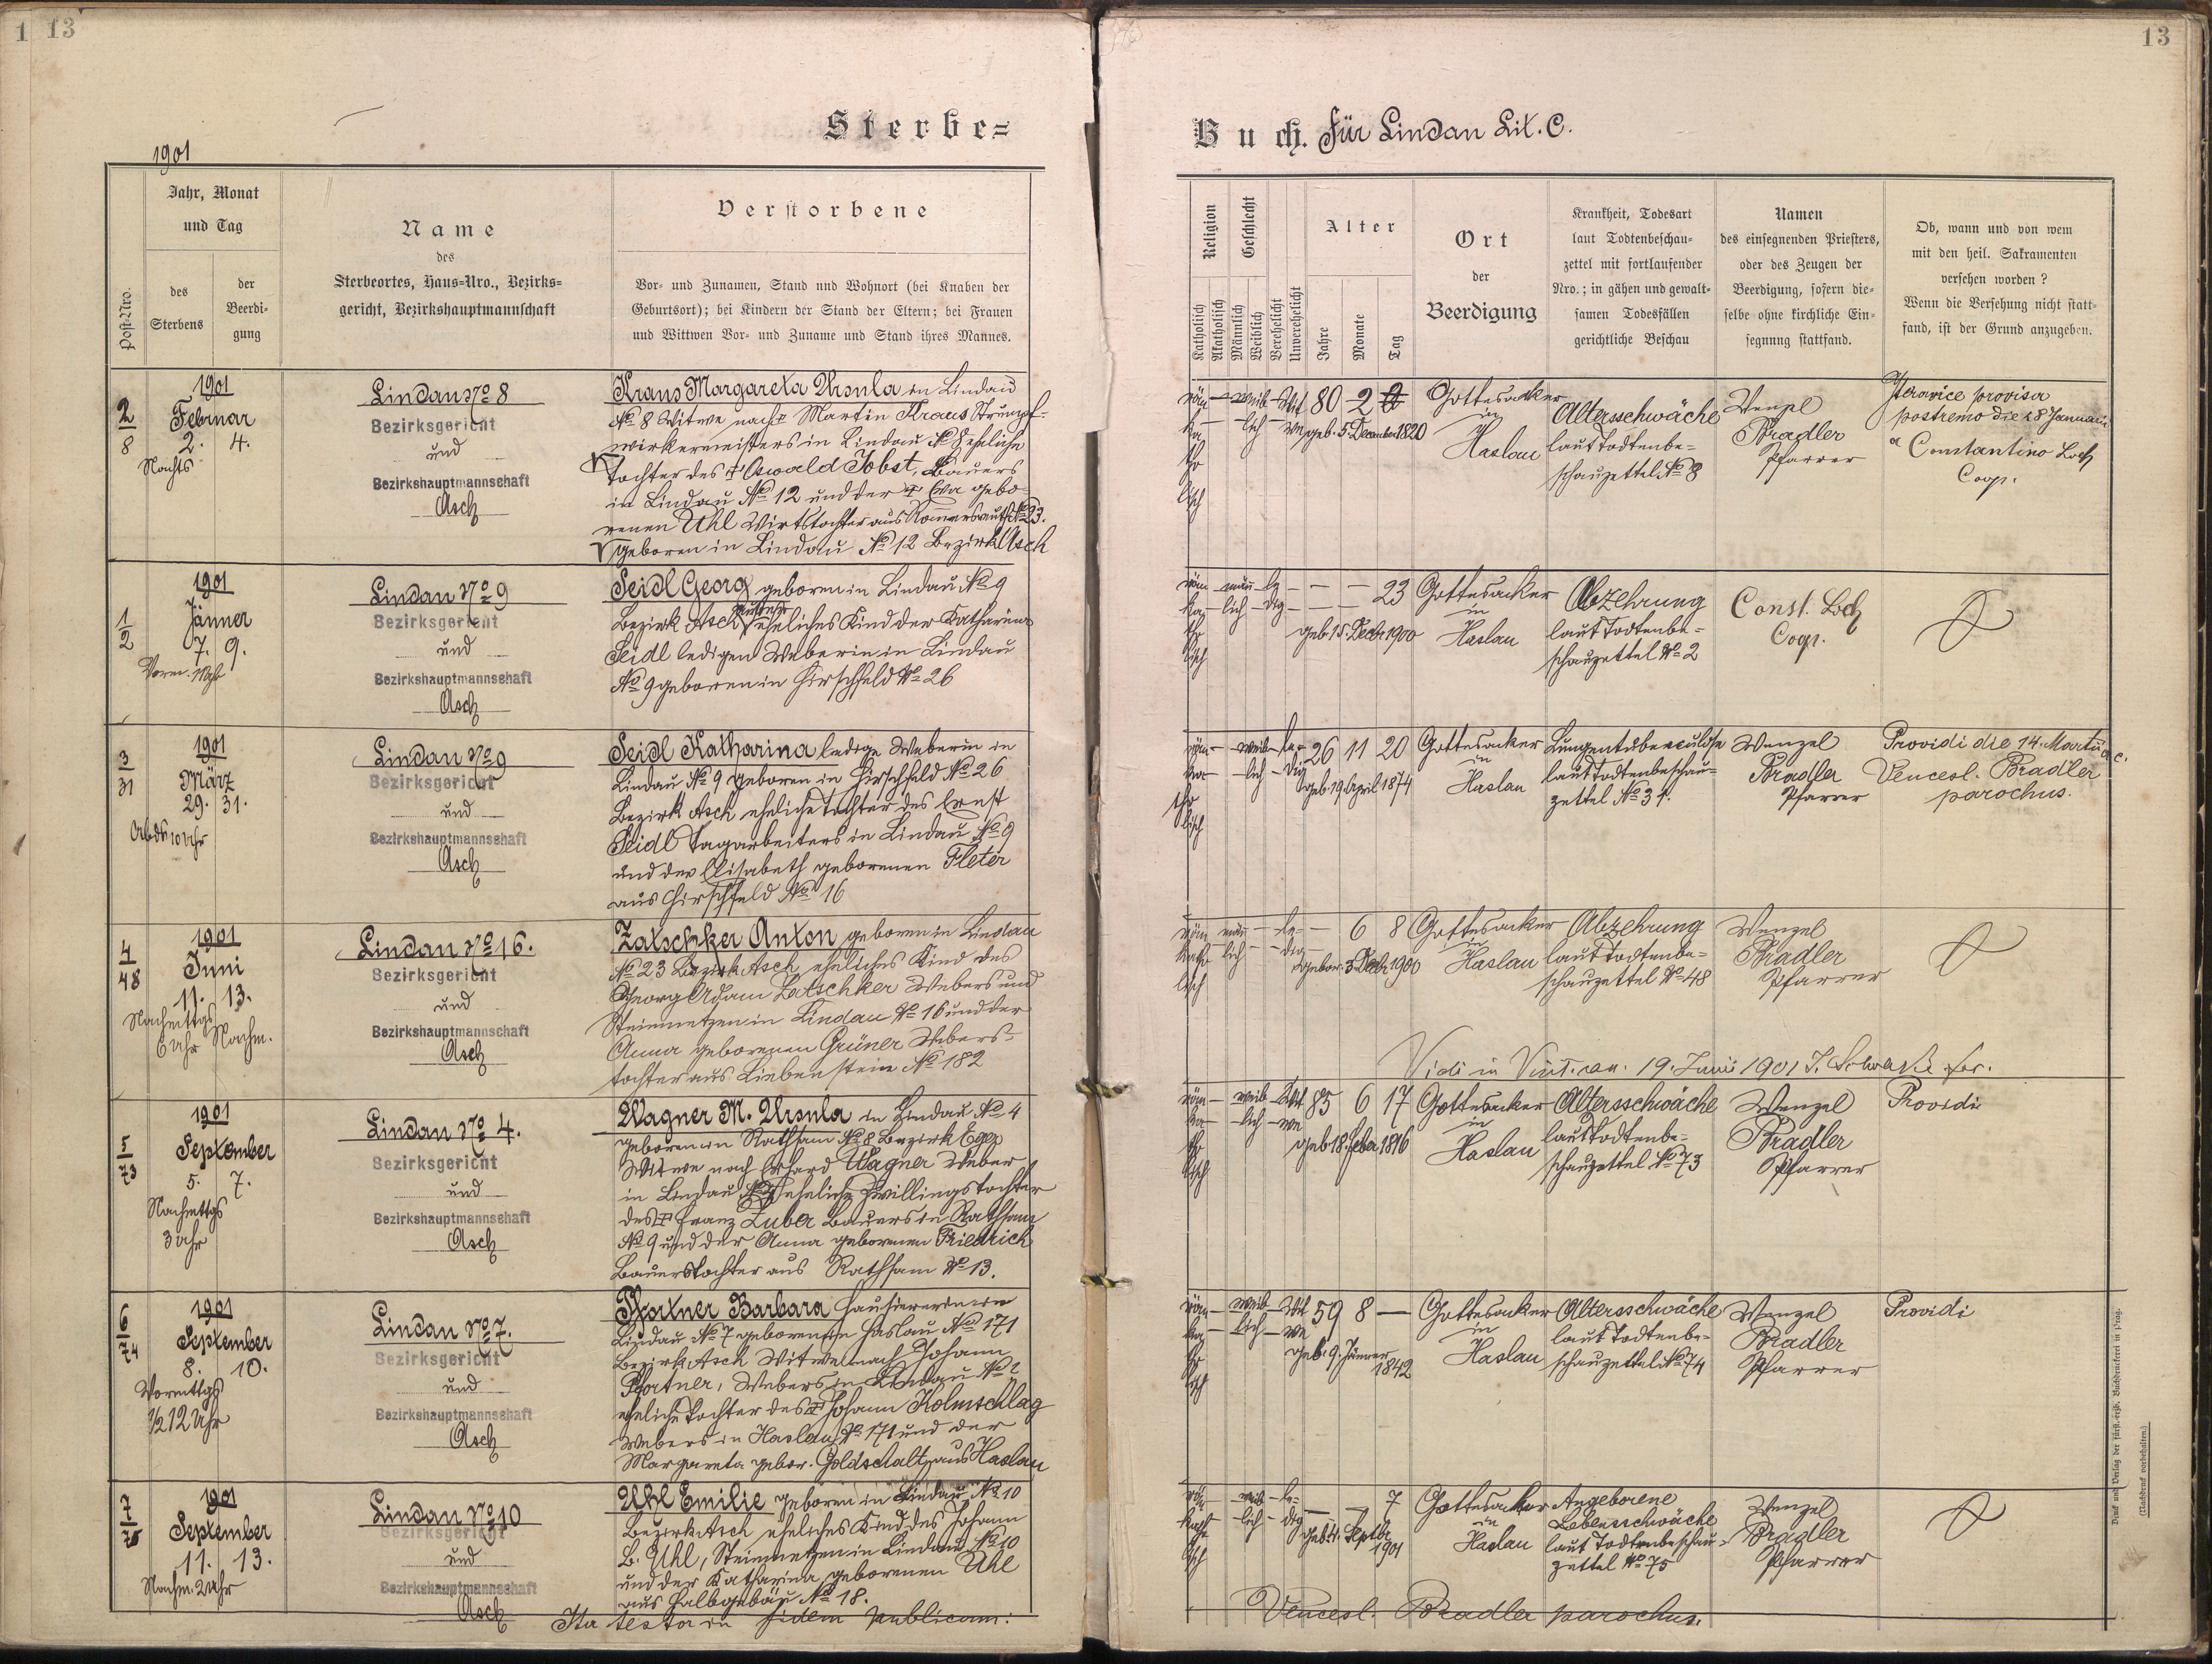 1 13
13
Sterbe=
Buch. für Lindau Lit. C.
1901
Post-Nro.
Jahr, Monat
und Tag
des
Sterbens
der
Beerdi-
gung
Name
des
Sterbeortes, Haus-Nro., Bezirks-
gericht, Bezirkshauptmannschaft
Verstorbene
Vor- und Zunamen, Stand und Wohnort (bei Knaben der
Geburtsort); bei Kindern der Stand der Eltern; bei Frauen
und Wittwen Vor- und Zuname und Stand ihres Mannes.
Religion
Katholisch
Akatholisch
Geschlecht
Männlich
Weiblich
Verehelicht
Unverehelicht
Alter
Jahre
Monate
Tag
Ort
der
Beerdigung
Krankheit, Todesart
laut Todtenbeschau-
zettel mit fortlaufender
Nro.; in gähen und gewalt-
samen Todesfällen
gerichtliche Beschau
Namen
des einsegnenden Priesters,
oder des Zeugen der
Beerdigung, sofern die-
selbe ohne kirchliche Ein-
segnung stattfand.
Ob, wann und von wem
mit den heil. Sakramenten
versehen worden?
Wenn die Versehung nicht statt-
fand, ist der Grund anzugeben.
2
8
1901
Februar
2. 4.
Nachts
Lindau No 8
Bezirksgericht
und
Bezirkshauptmannschaft
Asch
Kraus Margareta Ursula in Lindau
No 8 Witwe nach † Martin Kraus Strumpf-
wirkermeisters in Lindau No 8 eheliche
Tochter des † Oswald Jobst, Bauers
in Lindau No 12 und der † Eva gebo-
renen Uhl Wirtstochter aus Rommersreuth No 23.
geboren in Lindau No 12 Bezirk Asch
röm- weib- Wit 80 2
ka- lich- we geb. 5. December 1820
tho
lisch
Gottesacker
in
Haslau
Altersschwäche
laut Todtenbe-
schauzettel No 8
Wenzel
Bradler
Pfarrer
provisa
postremo die 28 Januarii
a Constantino Loch
Coop.
1
2
1901
Jänner
7. 9.
Lindau No 9
Bezirksgericht
und
Bezirkshauptmannschaft
Asch
Seidl Georg geboren in Lindau No 9
Bezirk Asch außereheliches Kind der Katharina
Seidl ledigen Weberin in Lindau
No 9 geboren in Hirschfeld No 26
röm- män- le- 23
ka- lich- dig
tho geb. 15. Decbr 1900
lisch
Gottesacker
in
Haslau
Abzehrung
laut Todtenbe-
schauzettel No 2
Const. Loch
Coop.
3
31
1901
März
29. 31.
Abds 10 Uhr
Lindau No 9
Bezirksgericht
und
Bezirkshauptmannschaft
Asch
Seidl Katharina ledige Weberin in
Lindau No 9 geboren in Hirschfeld No 26
Bezirk Asch eheliche Tochter des Ernst
Seidl Tagarbeiters in Lindau No 9
und der Elisabeth geborenen Fleter
aus Hirschfeld No 16
röm- weib- le- 26 11 20
ka- lich- dig geb. 19. April 1874
tho
lisch
Gottesacker
in
Haslau
Lungentuberculose
laut Todtenbeschau-
zettel No 31.
Wenzel
Bradler
Pfarrer
Providi die 14. Martii a.c.
Vencesl. Bradler
parochus.
4
48
1901
Juni
11. 13.
Nachmittgs
6 Uhr Nachm.
Lindau No 16.
Bezirksgericht
und
Bezirkshauptmannschaft
Asch
Zatschker Anton geboren in Lindau
No 23 Bezirk Asch eheliches Kind des
Georg Adam Zatschker Webers und
Steinmetzen in Lindau No 16 und der
Anna geborenen Grüner Webers-
tochter aus Liebenstein No 182
röm män- le- 6 8
katho lich- dig
lisch gebor. 3. Decbr 1900
Gottesacker
in
Haslau
Abzehrung
laut Todtenbe-
schauzettel No 48
Wenzel
Bradler
Pfarrer
Vidi in Visit. can. 19. Junii 1901
5
73
1901
September
5. 7.
Nachmttgs
3 Uhr
Lindau No 4.
Bezirksgericht
und
Bezirkshauptmannschaft
Asch
Wagner M. Ursula in Lindau No 4
geboren in Rathsam No 8 Bezirk Eger
Witwe nach Erhard Wagner Weber
in Lindau No 4 eheliche Zwillingstochter
des † Franz Zuber Bauers in Rathsam
No 9 und der Anna geborenen Friedrich
Bauerstochter aus Rathsam No 13.
röm- weib- Wit 85 6 17
ka- lich- we
tho geb. 18. Feber 1816
lisch
Gottesacker
in
Haslau
Altersschwäche
laut Todtenbe-
schauzettel No 73
Wenzel
Bradler
Pfarrer
Providi
6
74
1901
September
8. 10.
Vormttgs
1/2 12 Uhr
Lindau No 7.
Bezirksgericht
und
Bezirkshauptmannschaft
Asch
Pfortner Barbara Hausiererin in
Lindau No 7 geboren in Haslau No 171
Bezirk Asch Witwe nach Johann
Pfortner, Webers in Lindau No 7
eheliche Tochter des † Johann Kolmschlag
Webers in Haslau No 171 und der
Margareta gebor. Goldschalt aus Haslau
röm- weib- Wit 59 8 —
ka- lich- we
tho geb. 9. Jänner
lisch 1842
Gottesacker
in
Haslau
Altersschwäche
laut Todtenbe-
schauzettel No 74
Wenzel
Bradler
Pfarrer
Providi
7
75
1901
September
11. 13.
Nachm. 2 Uhr
Lindau No 10
Bezirksgericht
und
Bezirkshauptmannschaft
Asch
Uhl Emilie geboren in Lindau No 10
Bezirk Asch eheliches Kind des Johann
B. Uhl, Steinmetzen in Lindau No 10
und der Katharina geborenen Uhl
aus Halbgebäu No 18.
röm weib- le- 7
katho lich- dig
lisch geb. 4. Septbr
1901
Gottesacker
in
Haslau
Angeborene
Lebensschwäche
laut Todtenbeschau-
zettel No 75
Wenzel
Bradler
Pfarrer
Ita testor in fidem publicam:
Vencesl. Bradler parochus.
Druck und Verlag der fürst.-erzb. Buchdruckerei in Prag.
(Nachdruck vorbehalten.)